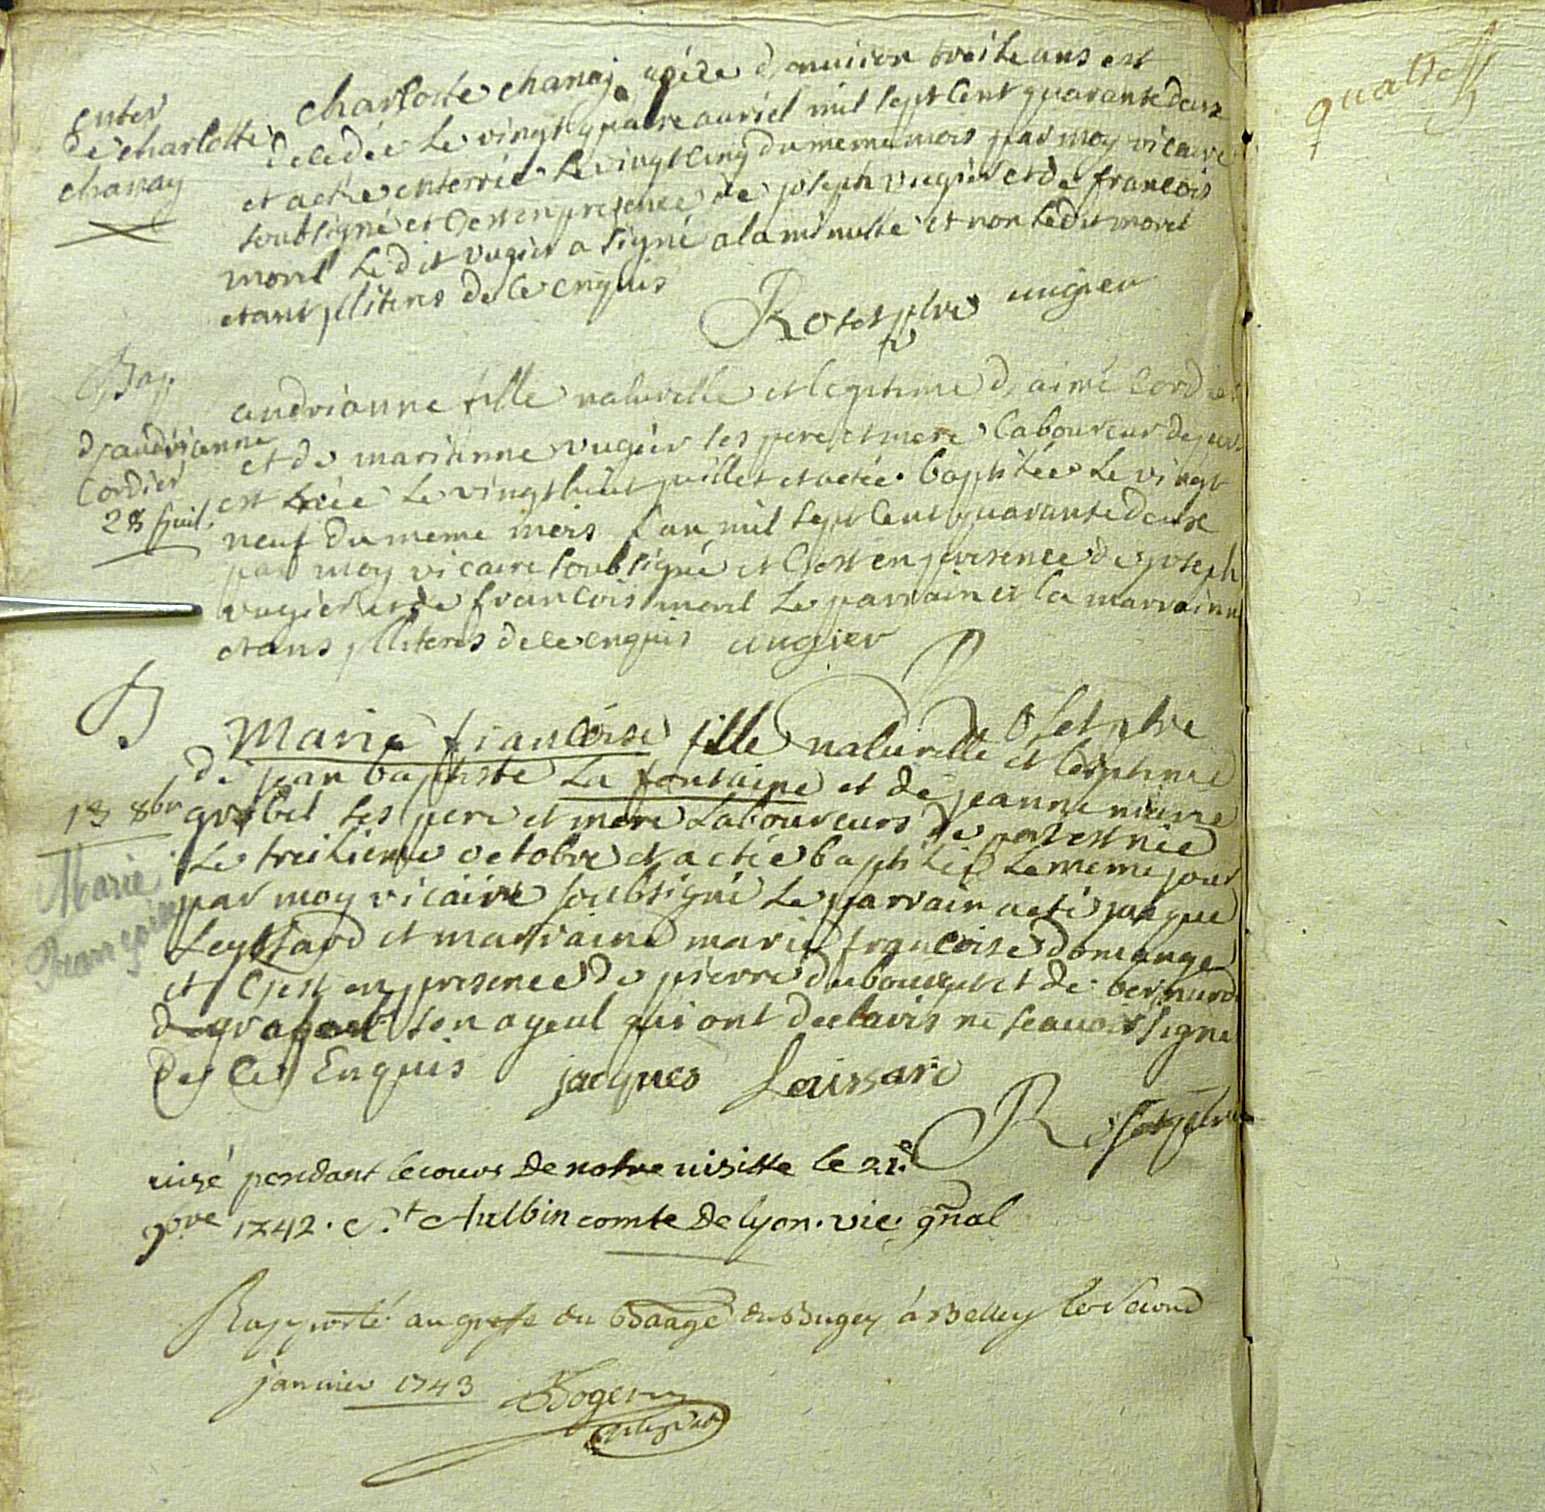 quatre
enter
de charlotte
chanay
charlotte chanay agéée d'enuiron treise ans est
decedée le vingt quatre auriel mil sept cent quarante deux
et a etée enterrée le vingt cinq du meme mois par moy vicaire
soubsigné et c'est en presence de joseph vugier et de francois
morel le dit vugier a signé a la minutte et non le dit morel
etant jlliteres de ce enquis
Roset ptre uugier
Bap.
d'audrianne
Cordier
28 juil.
andrianne fille naturelle et legitime d'aimé Cordier
et de marianne vugier ses pere et mere laboureur de
est née le vingt huit juillet et a etée baptisée le vingt
neuf du meme mois l'an mil sept cent quarante deux
par moy vicaire soubsigné et c'est en presence de joseph
vugier et de francois morel le parrain et la marrainne
etans jlliteres de ce enquis uugier
Roset ptre
B
13 8bre
Marie
Françoise
Marie francoise fille naturelle et legitime
de jean baptiste La fontaine et de jeanne marie
grobel ses pere et mere laboureurs de est née
le treisieme octobre et a etée baptisée le meme jour
par moy vicaire soubsigné le parrain a eté jacque
Leyssard et marraine marie francoise domange
et c'est en presence de pierre dubourget et de bernard
son ayeul qui ont declarés ne scauoir signé
de ce Enquis jacques Leissard
Roset ptre
uisé pendant le cours de notre uisitte le 21e
9bre 1742. St Aulbin comte de lyon. vic. gnal
Rapporté au grefe du Baage du Bugey à Belley le second
januier 1743 Bogery